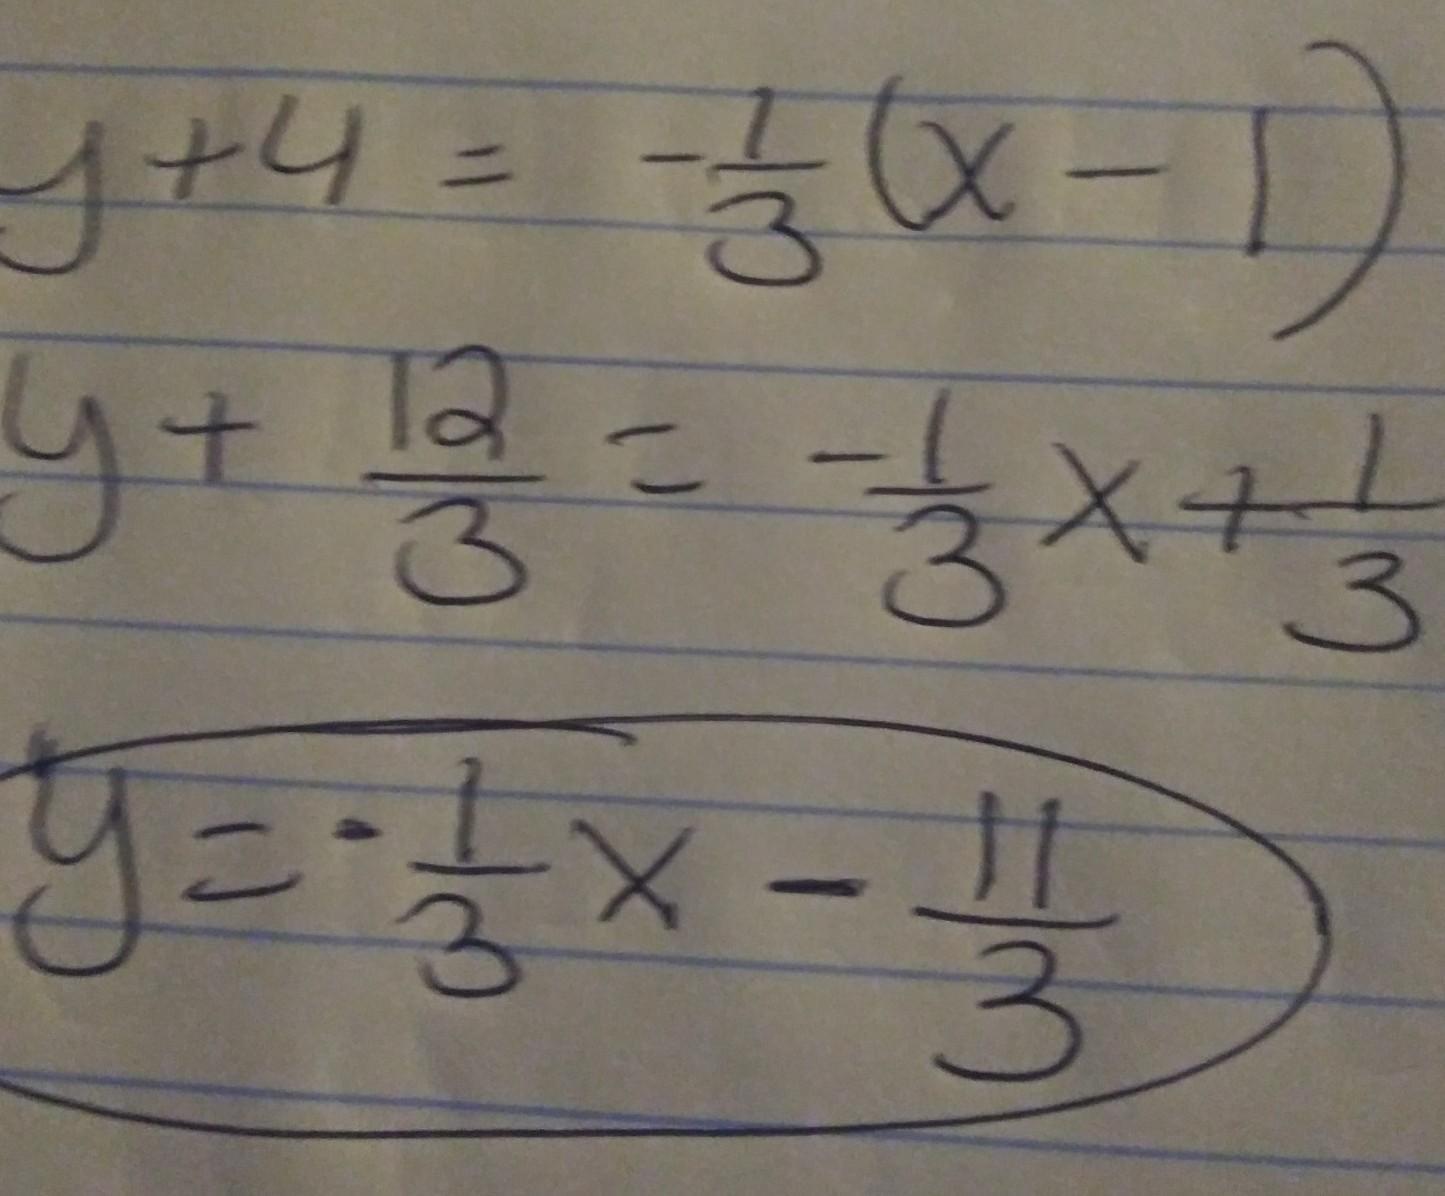 y + 4 = -1/3 (x - 1)
y + 12/3 = -1/3 x + 1/3
y = -1/3 x - 11/3